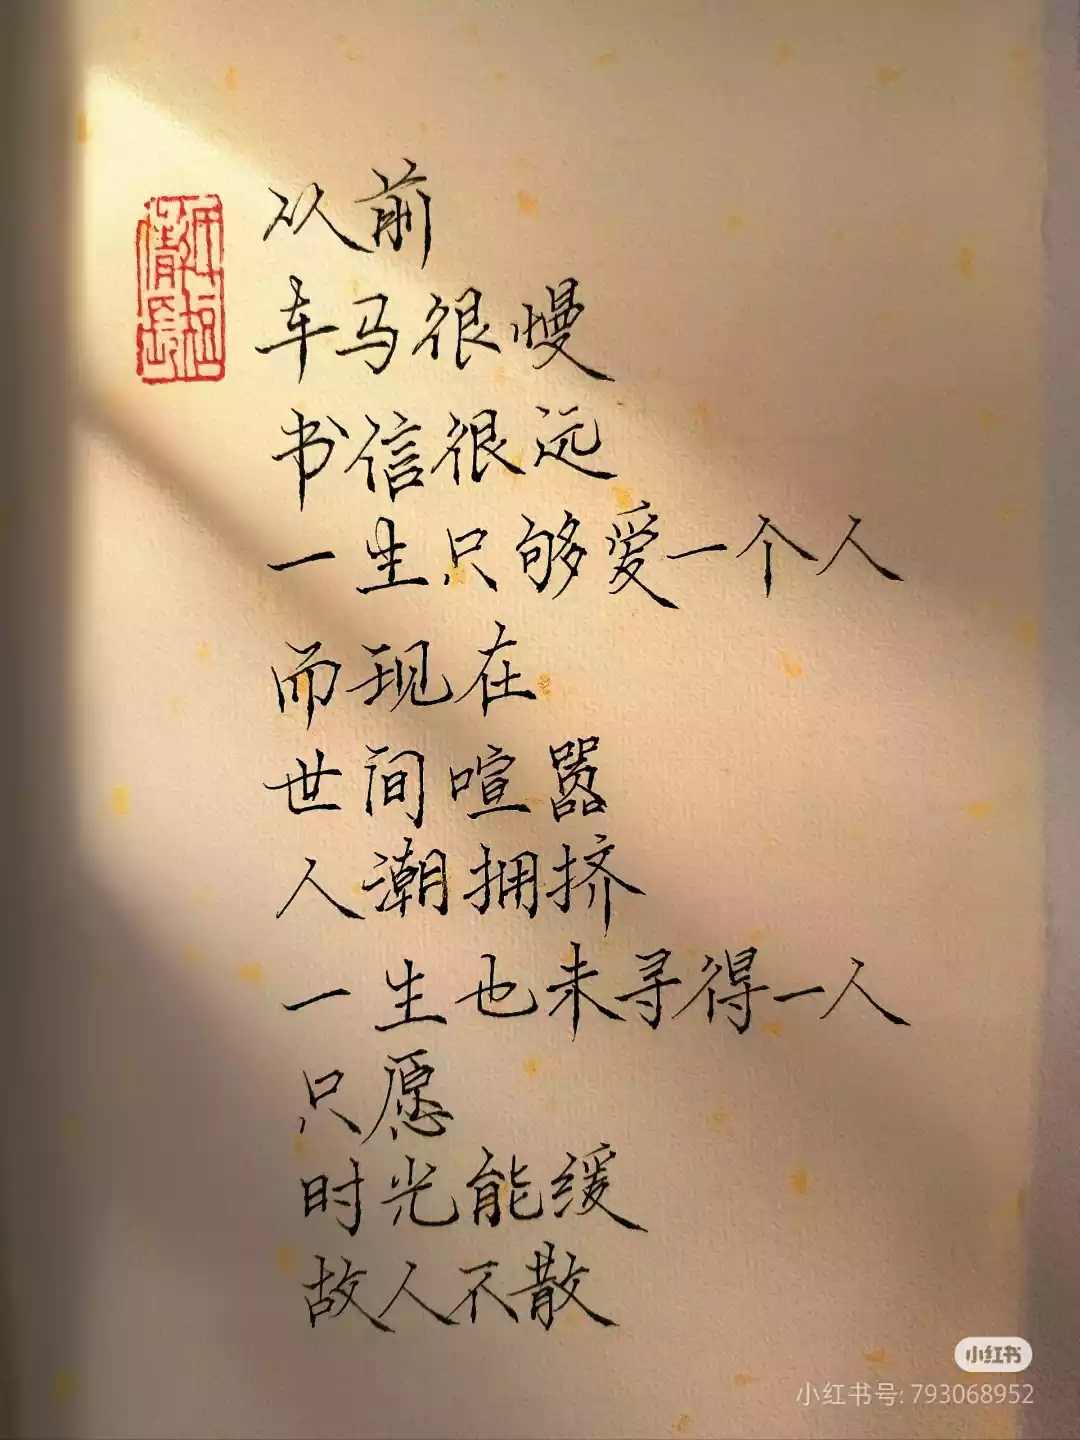 从前
车马很慢
书信很远
一生只够爱一个人
而现在
世间喧嚣
人潮拥挤
一生也未寻得一人
只愿
时光能缓
故人不散
小红书
小红书号: 793068952